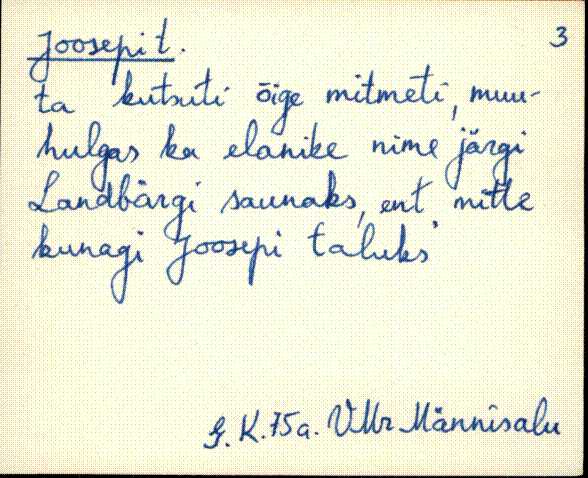 Joosepi t. 3
ta kutsuti õige mitmeti, muu-
hulgas ka elanike nime järgi
Landbärgi saunaks, ent mitte
kunagi Joosepi taluks"
G. K. 75a. VMr Männisalu